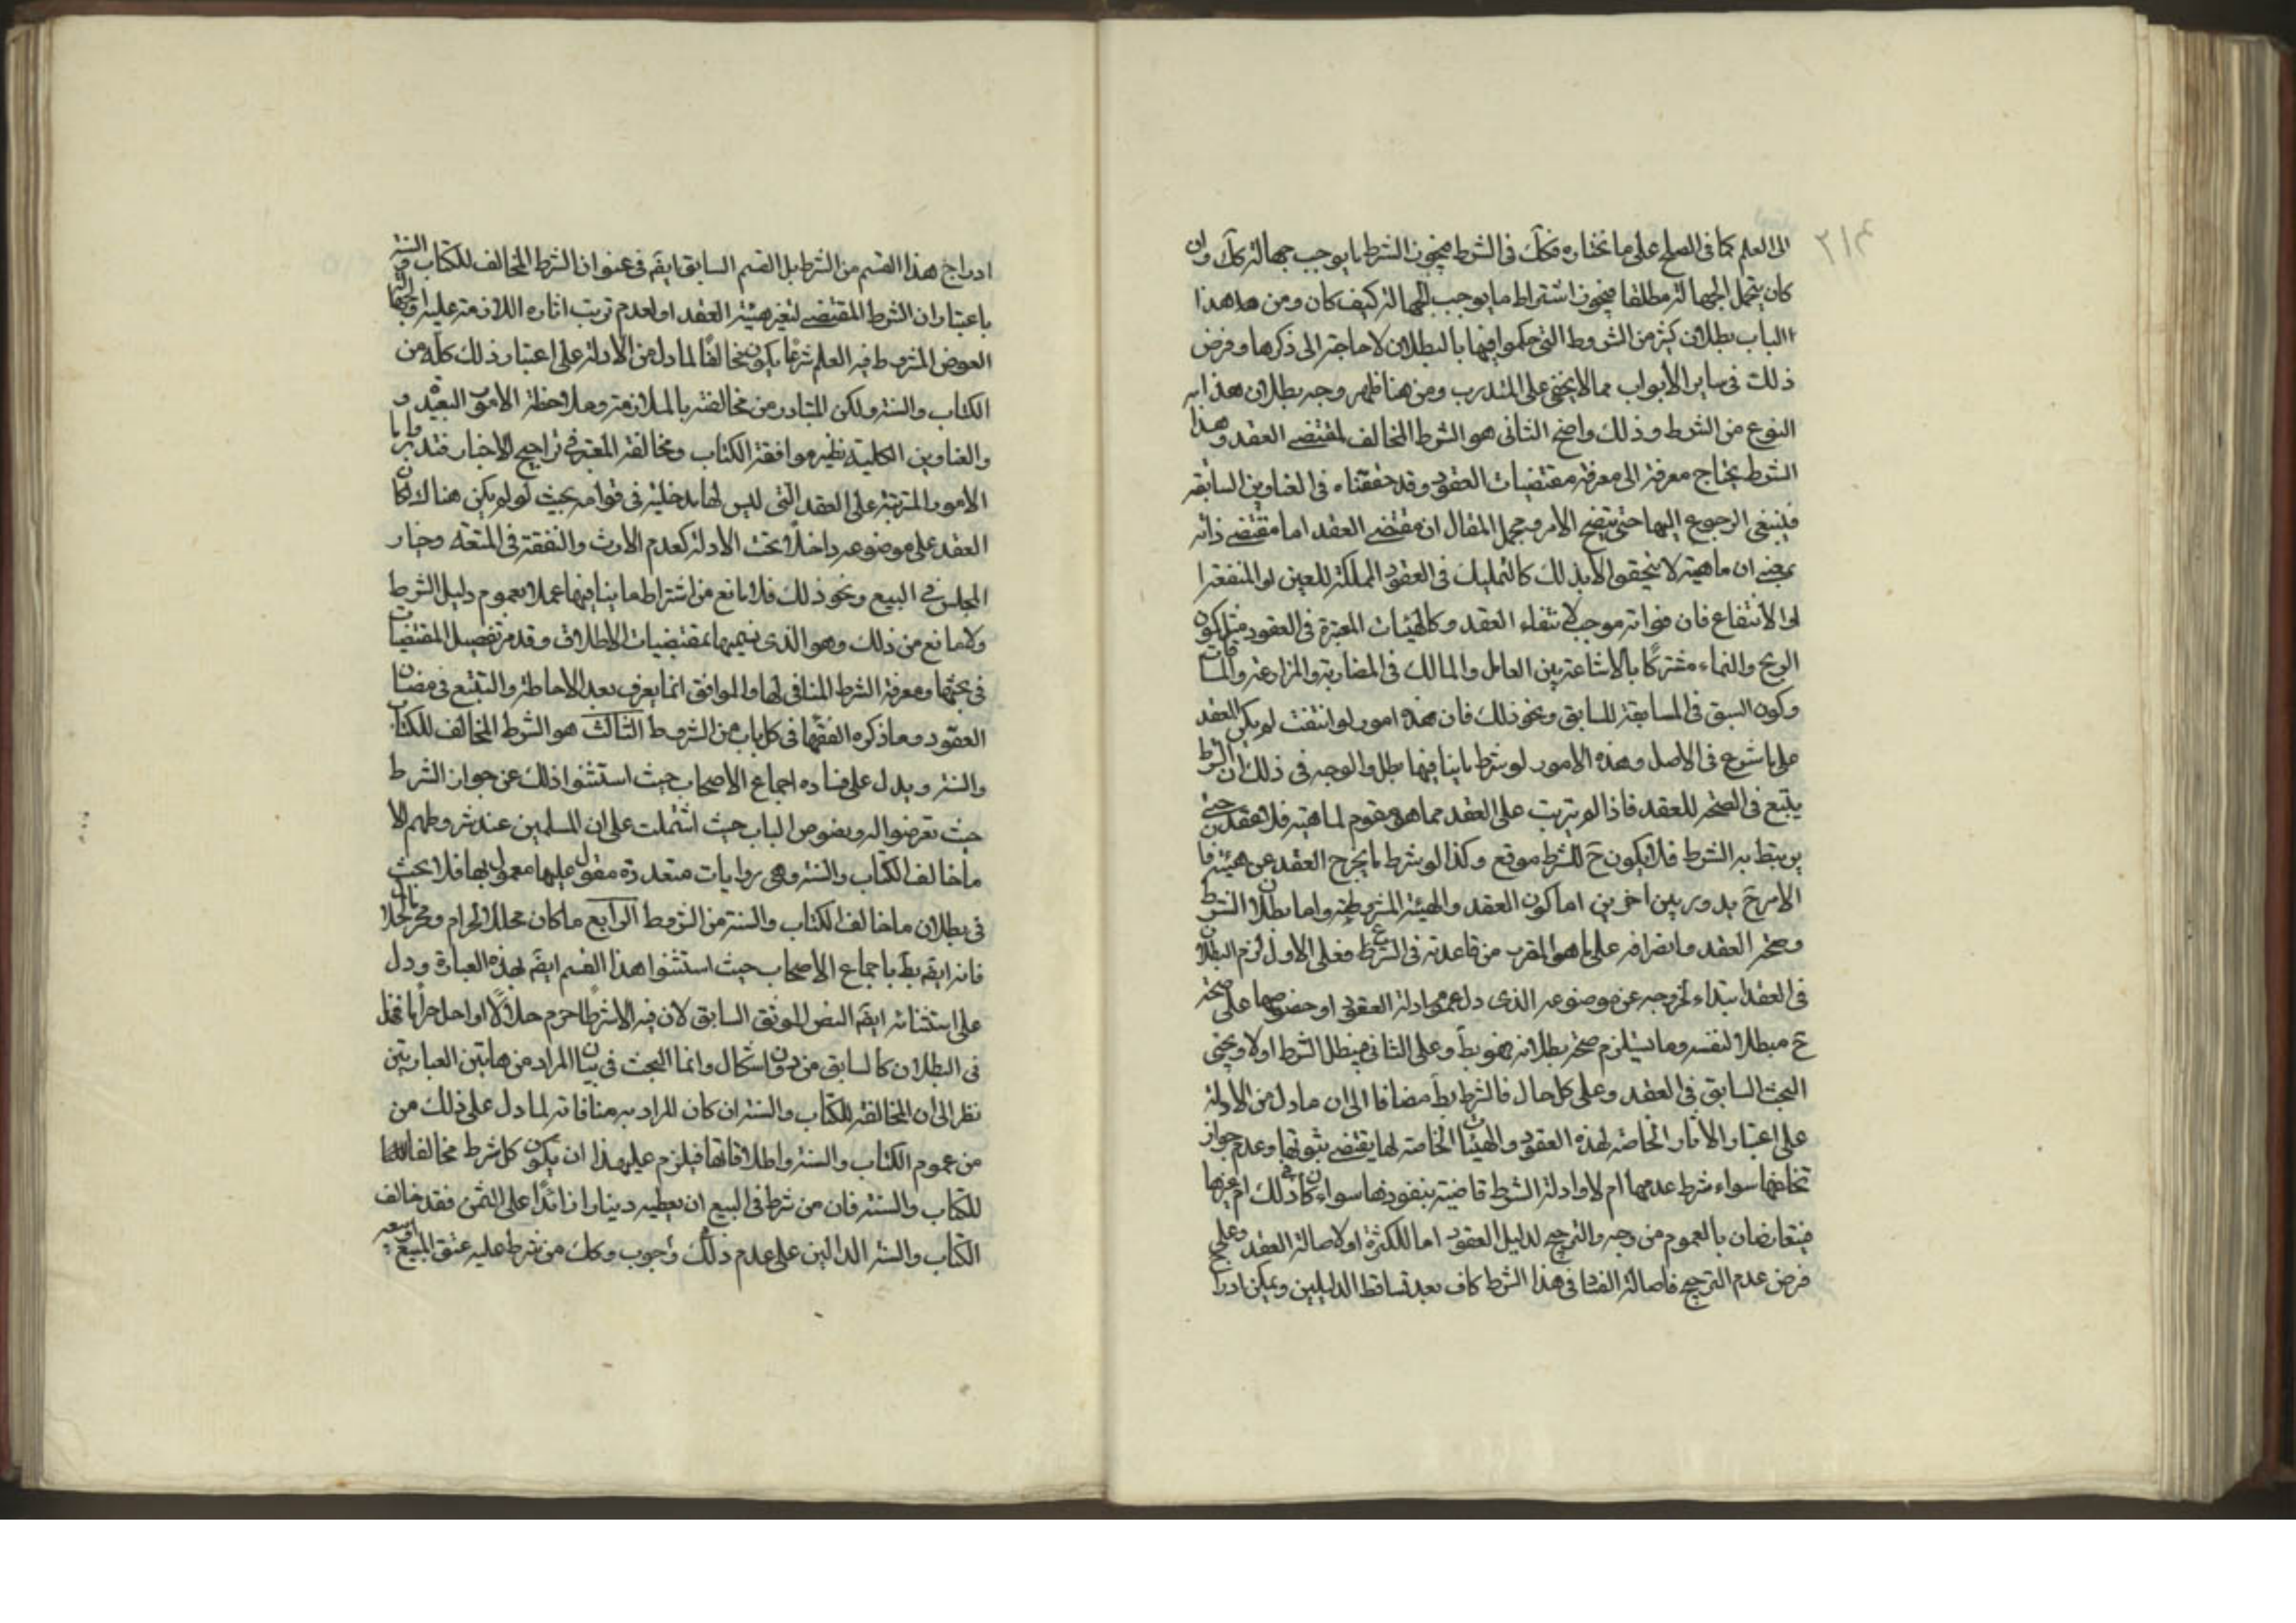 الی العلم كما فی الصلح علی ما نختاره فكك فی الشرط فيجوز الشرط بما يوجب جهالة كك وان
كان يتحمل الجهالة مطلقا فيجوز اشتراط ما يوجب الجهالة كيف كان ومن هذا
الباب بطلان كثير من الشروط التی حكموا فيها بالبطلان لا حاجة الی ذكرها وفرض
ذلك فی ساير الأبواب مما لا يخفی علی المتدرب ومن هنا ظهر وجه بطلان هذا
النوع من الشرط وذلك واضح الثانی هو الشرط المخالف لمقتضی العقد وهذا
الشرط يحتاج معرفة الی معرفة مقتضيات العقود وقد حققناه فی العناوين السابقة
فينبغی الرجوع اليها حتی يتضح الامر ومجمل المقال ان مقتضی العقد اما مقتضی ذاته
بمعنی ان ماهيته لا يتحقق الا بذلك كالتمليك فی العقود المملكة للعين او المنفعة
او الانتفاع فان فواته موجب لانتفاء العقد وكالهيئات المعتبرة فی العقود مثل كون
الربح والنماء مشتركا بالاشاعة بين العامل والمالك فی المضاربة والمزارعة والمساقات
وكون السبق فی المسابقة للسابق ونحو ذلك فان هذه امور لو انتفت لم يكن العقد
علی ما شرع فی الاصل وهذه الامور لو شرط ما ينافيها بطل والوجه فی ذلك ان الشرط
يتبع فی الصحة للعقد فاذا لم يترتب علی العقد مما هو مقوم لماهيته فلا عقد حتی
يرتبط به الشرط فلا يكون ح للشرط موقع وكذا لو شرط ما يخرج العقد عن هيئته فا
الامر ح يدور بين اخرين اما كون العقد والهيئة المشروطة واما بطلان الشرط
وصحة العقد وانصرافه علی ما هو المقرب من قاعدته فی الشرع فعلی الاول لزم البطلان
فی العقد ابتداء لخروجه عن موضوعه الذی دل عموم ادلة العقود او خصوصها علی صحته
ح مبطلا لنفسه وما يستلزم صحته بطلانه فهو بط وعلی الثانی فيبطل الشرط اولا ويجئ
البحث السابق فی العقد وعلی كل حال فالشرط بط مضافا الی ان ما دل من الادلة
علی اعتبار الآثار الخاصة لهذه العقود والهيئات الخاصة لها يقتضی ثبوتها وعدم جواز
تخلفها سواء شرط عدمها ام لا وادلة الشرط قاضية بنفوذها سواء كان فی ذلك ام غيرها
فيتعارضان بالعموم من وجه والترجيح لدليل العقود اما للكثرة او لاصالة العقد وعلی
فرض عدم الترجيح فاصالة الفساد فی هذا الشرط كاف بعد تساقط الدليلين ويمكن ادرا
ادراج هذا القسم من الشرط بل القسم السابق ايضم فی عنوان الشرط المخالف للكتاب والسنة
باعتبار ان الشرط المقتضی لتغير هيئة العقد او لعدم ترتب اثاره اللازمة عليه او جهالة
العوض المشروط فيه العلم شرعا يكون مخالفا لما دل من الادلة علی اعتبار ذلك كله من
الكتاب والسنة ولكن المتبادر من مخالفته بالملازمة وملاحظة الامور البعيدة و
والعناوين الكلية نظير موافقة الكتاب ومخالفته المعتبرة فی تراجيح الاخبار فتدبر واما
الامور المترتبة علی العقد التی ليس لها مدخلية فی قوامه بحيث لو لم يكن هناك لكان
العقد علی موضوعه داخلا تحت الادلة كعدم الارث والنفقة فی المتعة وخيار
المجلس فی البيع ونحو ذلك فلا مانع من اشتراط ما ينافيها عملا بعموم دليل الشرط
ولا مانع من ذلك وهو الذی نسميها بمقتضيات الاطلاق وقد مر تفصيل المقتضيات
فی بحثها ومعرفة الشرط المنافی لها والموافق انما يعرف بعد الاحاطة والتتبع فی مضان
العقود وما ذكره الفقها فی كل باب من الشروط الثالث هو الشرط المخالف للكتاب
والسنة ويدل علی فساده اجماع الاصحاب حيث استثنوا ذلك عن جواز الشرط
حيث تعرضوا له ونصوص الباب حيث اشتملت علی ان المسلمين عند شروطهم الا
ما خالف الكتاب والسنة وهی روايات متعددة مقول عليها معمول بها فلا بحث
فی بطلان ما خالف الكتاب والسنة من الشروط الرابع ما كان محللا لحرام ومحرم لحلال
فانه ايضم بط باجماع الاصحاب حيث استثنوا هذا القسم ايضم بهذه العبارة ودل
علی استثنائه ايضم النص الموثق السابق لان فيه الا شرطا حرم حلالا او احل حراما فهذا
فی البطلان كالسابق من دون اشكال وانما البحث فی بيان المراد من هاتين العبارتين
نظر الی ان المخالفة للكتاب والسنة ان كان المراد به منافاته لما دل علی ذلك من
من عموم الكتاب والسنة واطلاقاتها فيلزم علی هذا ان يكون كل شرط مخالفا
للكتاب والسنة فان من شرط فی البيع ان يعطيه دينارا زائدا علی الثمن فقد خالف
الكتاب والسنة الدالين علی عدم ذلك وجوب وكك من شرط عليه عتق المبيع